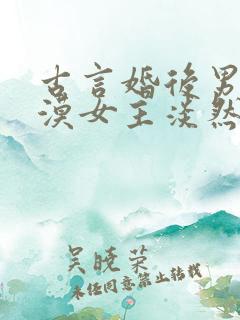 古言婚后男
漠女主淡然
吴晓荣
未经同意禁止转载